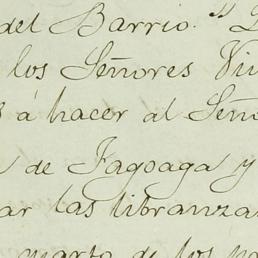 del Barrio."
los Señores
á hacer al
de Fagoaga y
las libranza
quarto de los